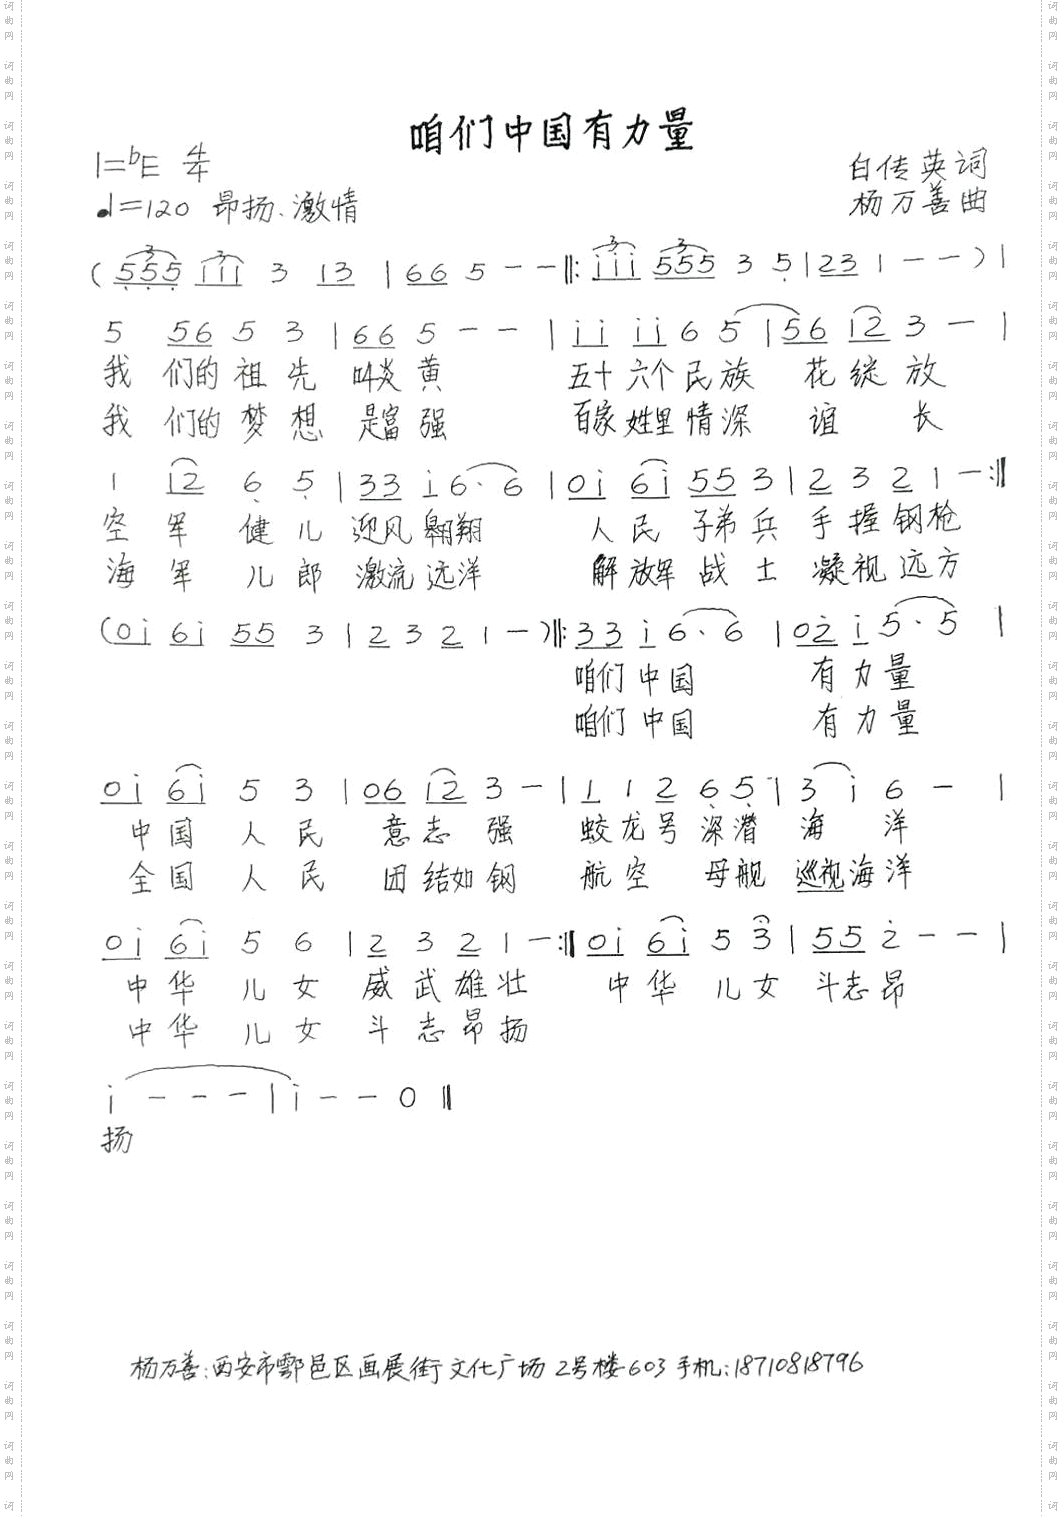 咱们中国有力量
1=♭E 4/4
白传英词
♩=120 昂扬、激情
杨万善曲
(5̣5̣5̣ i i i 3 13 | 66 5 - - ‖: i i i 555 3 5̣ | 23 1 - - ) |
5 56 5 3 | 66 5 - - | i i i i 6 5 | 56 i2 3 - |
我 们的 祖 先 叫炎 黄 五十 六个 民 族 花 绽 放
我 们的 梦 想 是富 强 百家 姓里 情 深 谊 长
1 12 6̣ 5̣ | 33 i 6· 6 | 0i 6i 55 3 | 2 3 2 1 - :‖
空 军 健 儿 迎风 翱翔 人 民 子弟 兵 手 握 钢 枪
海 军 儿 郎 激流 远洋 解 放军 战 士 凝 视 远 方
(0i 6i 55 3 | 2 3 2 1 - ) ‖: 33 i 6· 6 | 02̇ i 5· 5 |
咱们 中 国 有 力 量
咱们 中 国 有 力 量
0i 6i 5 3 | 06 i2 3 - | 1 1 2 6̣ 5̣ | 3 i 6 - |
中 国 人 民 意 志 强 蛟 龙 号 深 潜 海 洋
全 国 人 民 团 结如 钢 航 空 母 舰 巡视 海 洋
0i 6i 5 6 | 2 3 2 1 - :‖ 0i 6i 5 3̇ | 55 2̇ - - |
中 华 儿 女 威 武 雄 壮 中 华 儿 女 斗志 昂
中 华 儿 女 斗 志 昂 扬
i - - - | i - - 0 ‖
扬
杨万善:西安市鄠邑区画展街文化广场2号楼603手机:18710818796
词曲网